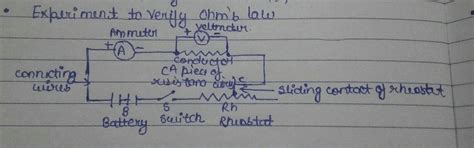 • Experiment to verify Ohm's law
Ammeter
voltmeter
+ A -
+ V -
conductor
(A piece of
resistance wire)
connecting
wires
C
sliding contact of rheostat
B
S
Rh
Battery Switch Rheostat